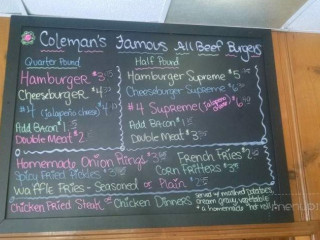 Coleman's Famous All Beef Burgers
Quarter Pound
Hamburger $3
Cheeseburger $4
#4 (Jalapeño cheese) $4
Add Bacon $1
Double Meat $2
Half Pound
Hamburger Supreme $5
Cheeseburger Supreme $6
#4 Supreme (Jalapeño cheese) $6
Add Bacon $1
Double Meat $3
Homemade Onion Rings $3 French Fries $2
Spicy Fried Pickles $3 Corn Fritters $3
Waffle Fries - Seasoned or Plain $2
Chicken Fried Steak or Chicken Dinners served w/ mashed potatoes,
cream gravy, vegetable
& a homemade hot roll